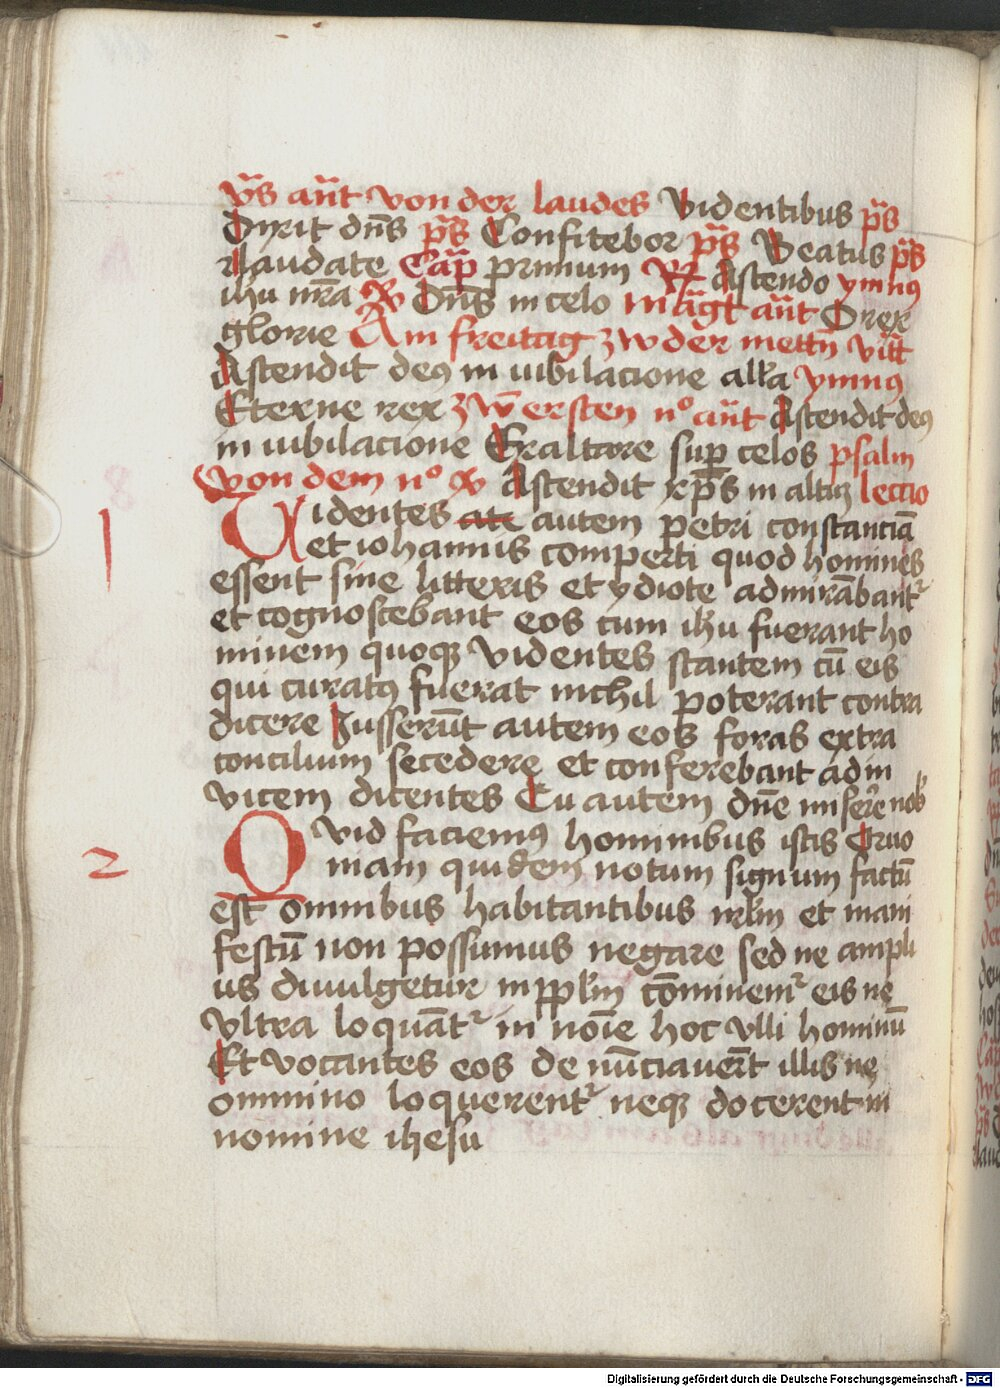 p̄s an̄t von der laudes Videntibus p̄s
Dixit dn̄s p̄s Confitebor p̄s Beatus p̄s
Laudate Cap̄ primum R Ascendo ymnus
ihu nr̄a V Dn̄s in celo m āgt an̄t O rex
glorie Am freitag zw der mettn̄ vitt
Ascendit deus in iubilacione all'a ymnus
Eterne rex zw ersten n° an̄t Ascendit deus
in iubilacione Exaltare sup celos psalm
von dem n° V Ascendit xp̄s in altum lectio
1 Videntes autem petri constanciā
et iohannis comperti quod homines
essent sine litteris et ydiote admirābant᷑
et cognoscebant eos cum ihu fuerant ho
minem quoque videntes stantem cū eis
qui curatus fuerat nichil poterant contra
dicere Jusserūt autem eos foras extra
concilium secedere et conferebant ad in
vicem dicentes Tu autem dn̄e miserē nob
2 Quid faciemus hominibus istis Quo
niam quidem notum signum factū
est omnibus habitantibus irl̄m et mani
festū non possumus negare sed ne ampli
us divulgetur in ppl̄m cōminem᷑ eis ne
vltra loquāt᷑ in noīe hoc vlli hominū
Et vocantes eos de nūciauer̄t illis ne
omnino loquerent᷑ neque docerent in
nomine ihesu
Digitalisierung gefördert durch die Deutsche Forschungsgemeinschaft - DFG